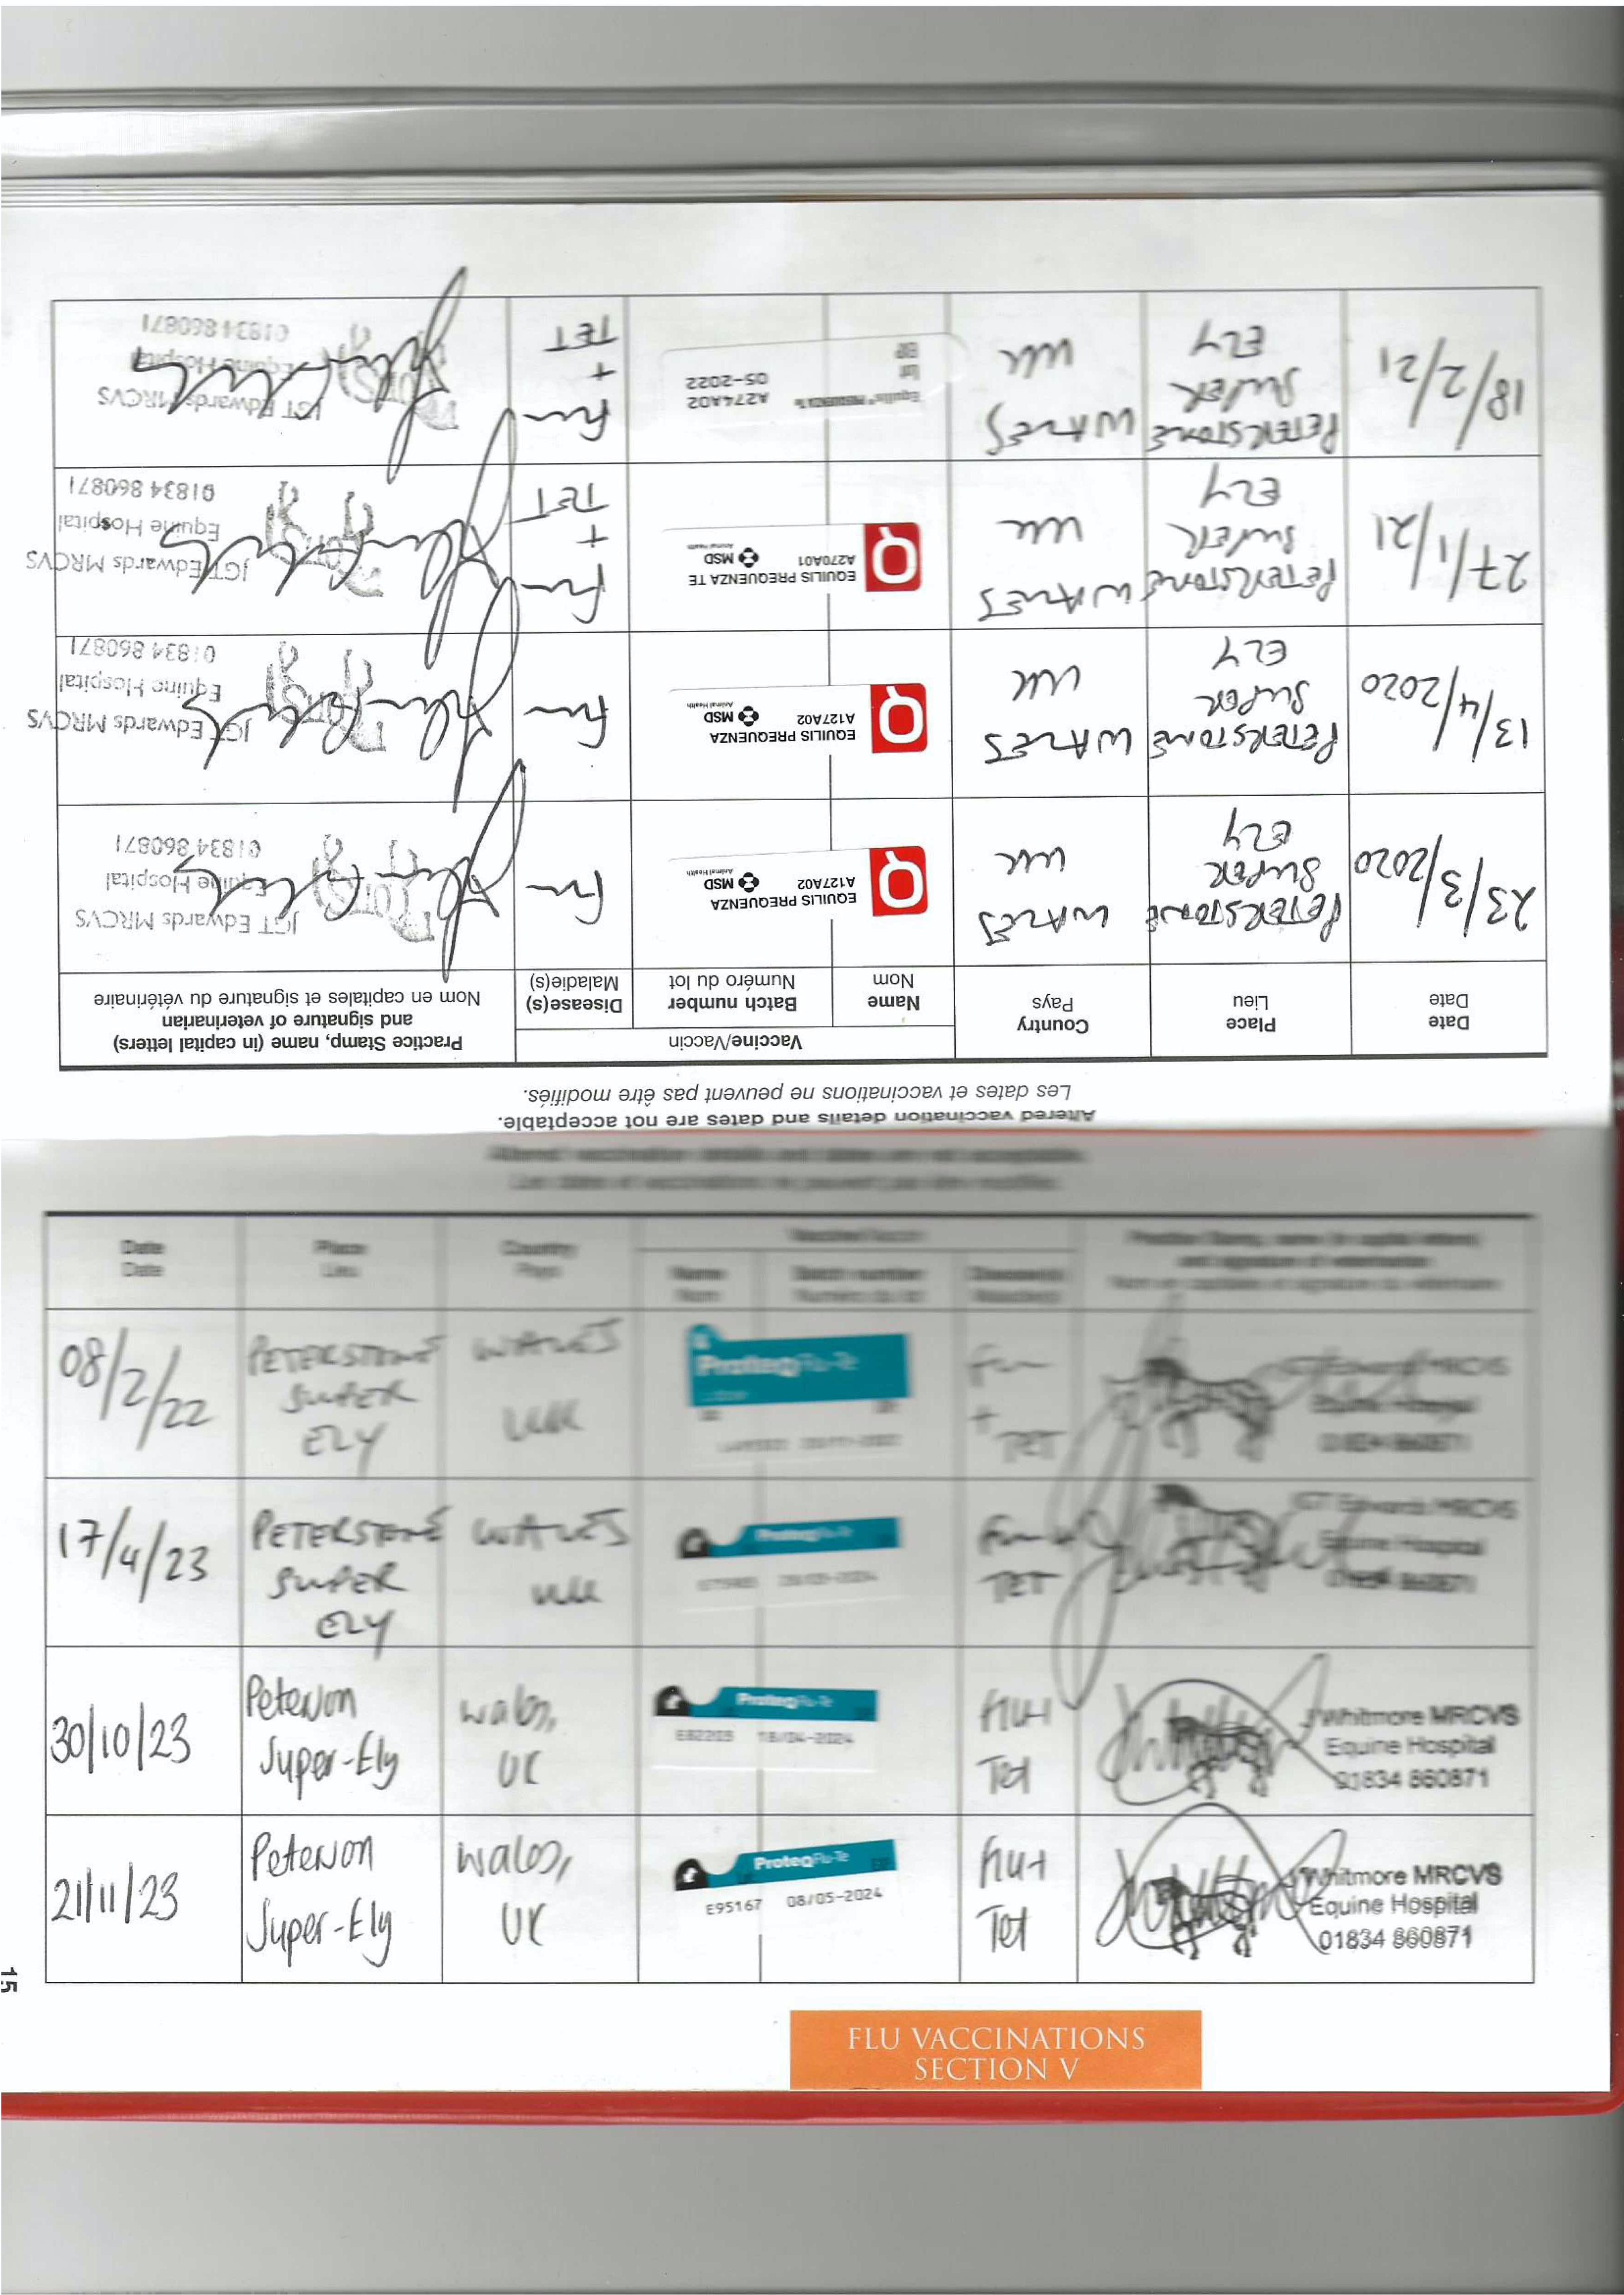 Altered vaccination details and dates are not acceptable.
Les dates et vaccinations ne peuvent pas être modifiés.
Date
Date
Place
Lieu
Country
Pays
Vaccine/Vaccin
Name
Nom
Batch number
Numéro du lot
Disease(s)
Maladie(s)
Practice Stamp, name (in capital letters)
and signature of veterinarian
Nom en capitales et signature du vétérinaire
23/3/2020
PETERSTONE
SUPER
ELY
WALES
UK
EQUILIS PREQUENZA
A127A02
MSD
Animal Health
Flu
JGT Edwards MRCVS
Equine Hospital
01834 860871
13/4/2020
PETERSTONE
SUPER
ELY
WALES
UK
EQUILIS PREQUENZA
A127A02
MSD
Animal Health
Flu
JGT Edwards MRCVS
Equine Hospital
01834 860871
27/1/21
PETERSTONE
SUPER
ELY
WALES
UK
EQUILIS PREQUENZA TE
A270A01
MSD
Animal Health
Flu
+
TET
JGT Edwards MRCVS
Equine Hospital
01834 860871
18/2/21
PETERSTONE
SUPER
ELY
WALES
UK
Equilis PREQUENZA Te
Lot A274A02
EXP 05-2022
Flu
+
TET
JGT Edwards MRCVS
Equine Hospital
01834 860871
Altered vaccination details and dates are not acceptable.
Les dates et vaccinations ne peuvent pas être modifiés.
Date
Date
Place
Lieu
Country
Pays
Vaccine/Vaccin
Name
Nom
Batch number
Numéro du lot
Disease(s)
Maladie(s)
Practice Stamp, name (in capital letters)
and signature of veterinarian
Nom en capitales et signature du vétérinaire
08/2/22
PETERSTONE
SUPER
ELY
WALES
UK
ProteqFlu-Te
Flu
+
TET
JGT Edwards MRCVS
Equine Hospital
01834 860871
17/4/23
PETERSTONE
SUPER
ELY
WALES
UK
ProteqFlu-Te
Flu +
TET
JGT Edwards MRCVS
Equine Hospital
01834 860871
30/10/23
Peterson
Super-Ely
Wales,
UK
ProteqFlu-Te
E82203 18/04-2024
Flu+
Tet
J Whitmore MRCVS
Equine Hospital
01834 860871
21/11/23
Peterson
Super-Ely
Wales,
UK
ProteqFlu-Te
E95167 08/05-2024
Flu+
Tet
J Whitmore MRCVS
Equine Hospital
01834 860871
15
FLU VACCINATIONS
SECTION V